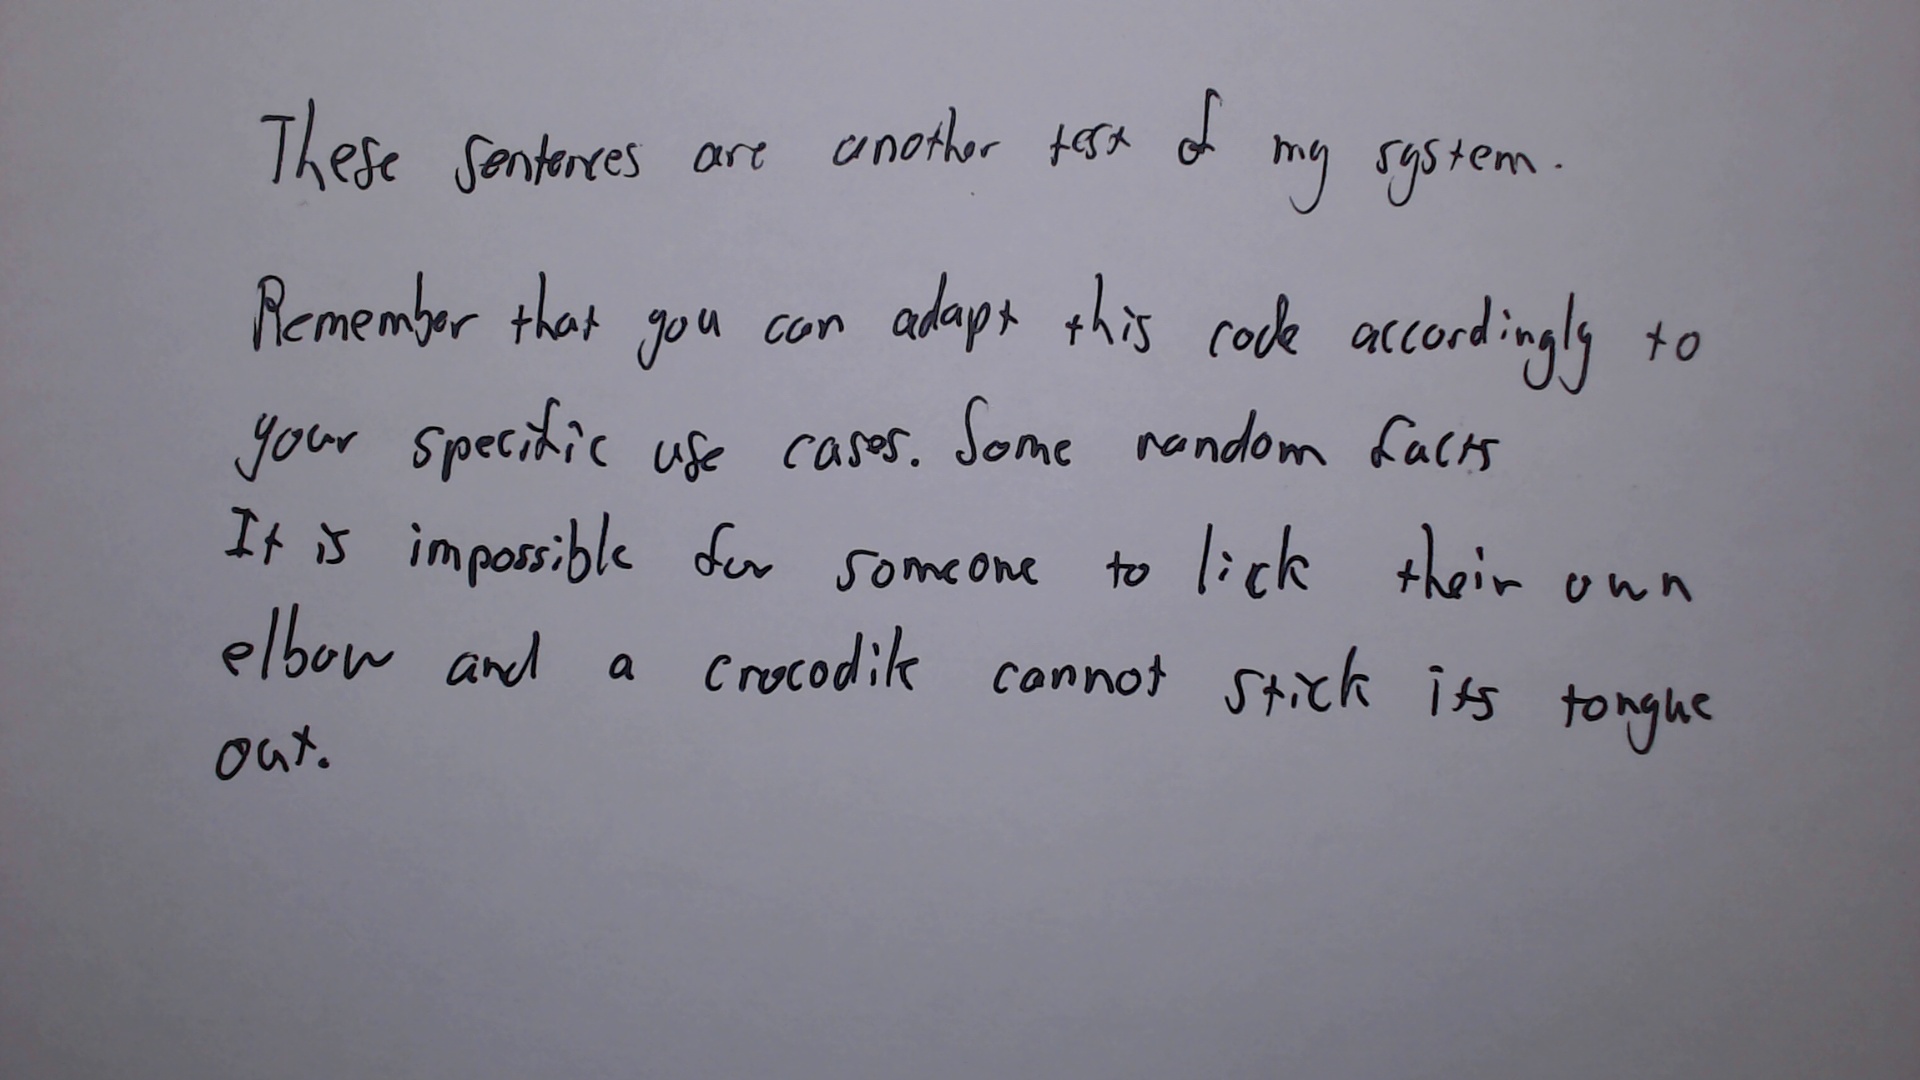 These sentences are another test of my system.
Remember that you can adapt this code accordingly to
your specific use cases. Some random facts
It is impossible for someone to lick their own
elbow and a crocodile cannot stick its tongue
out.